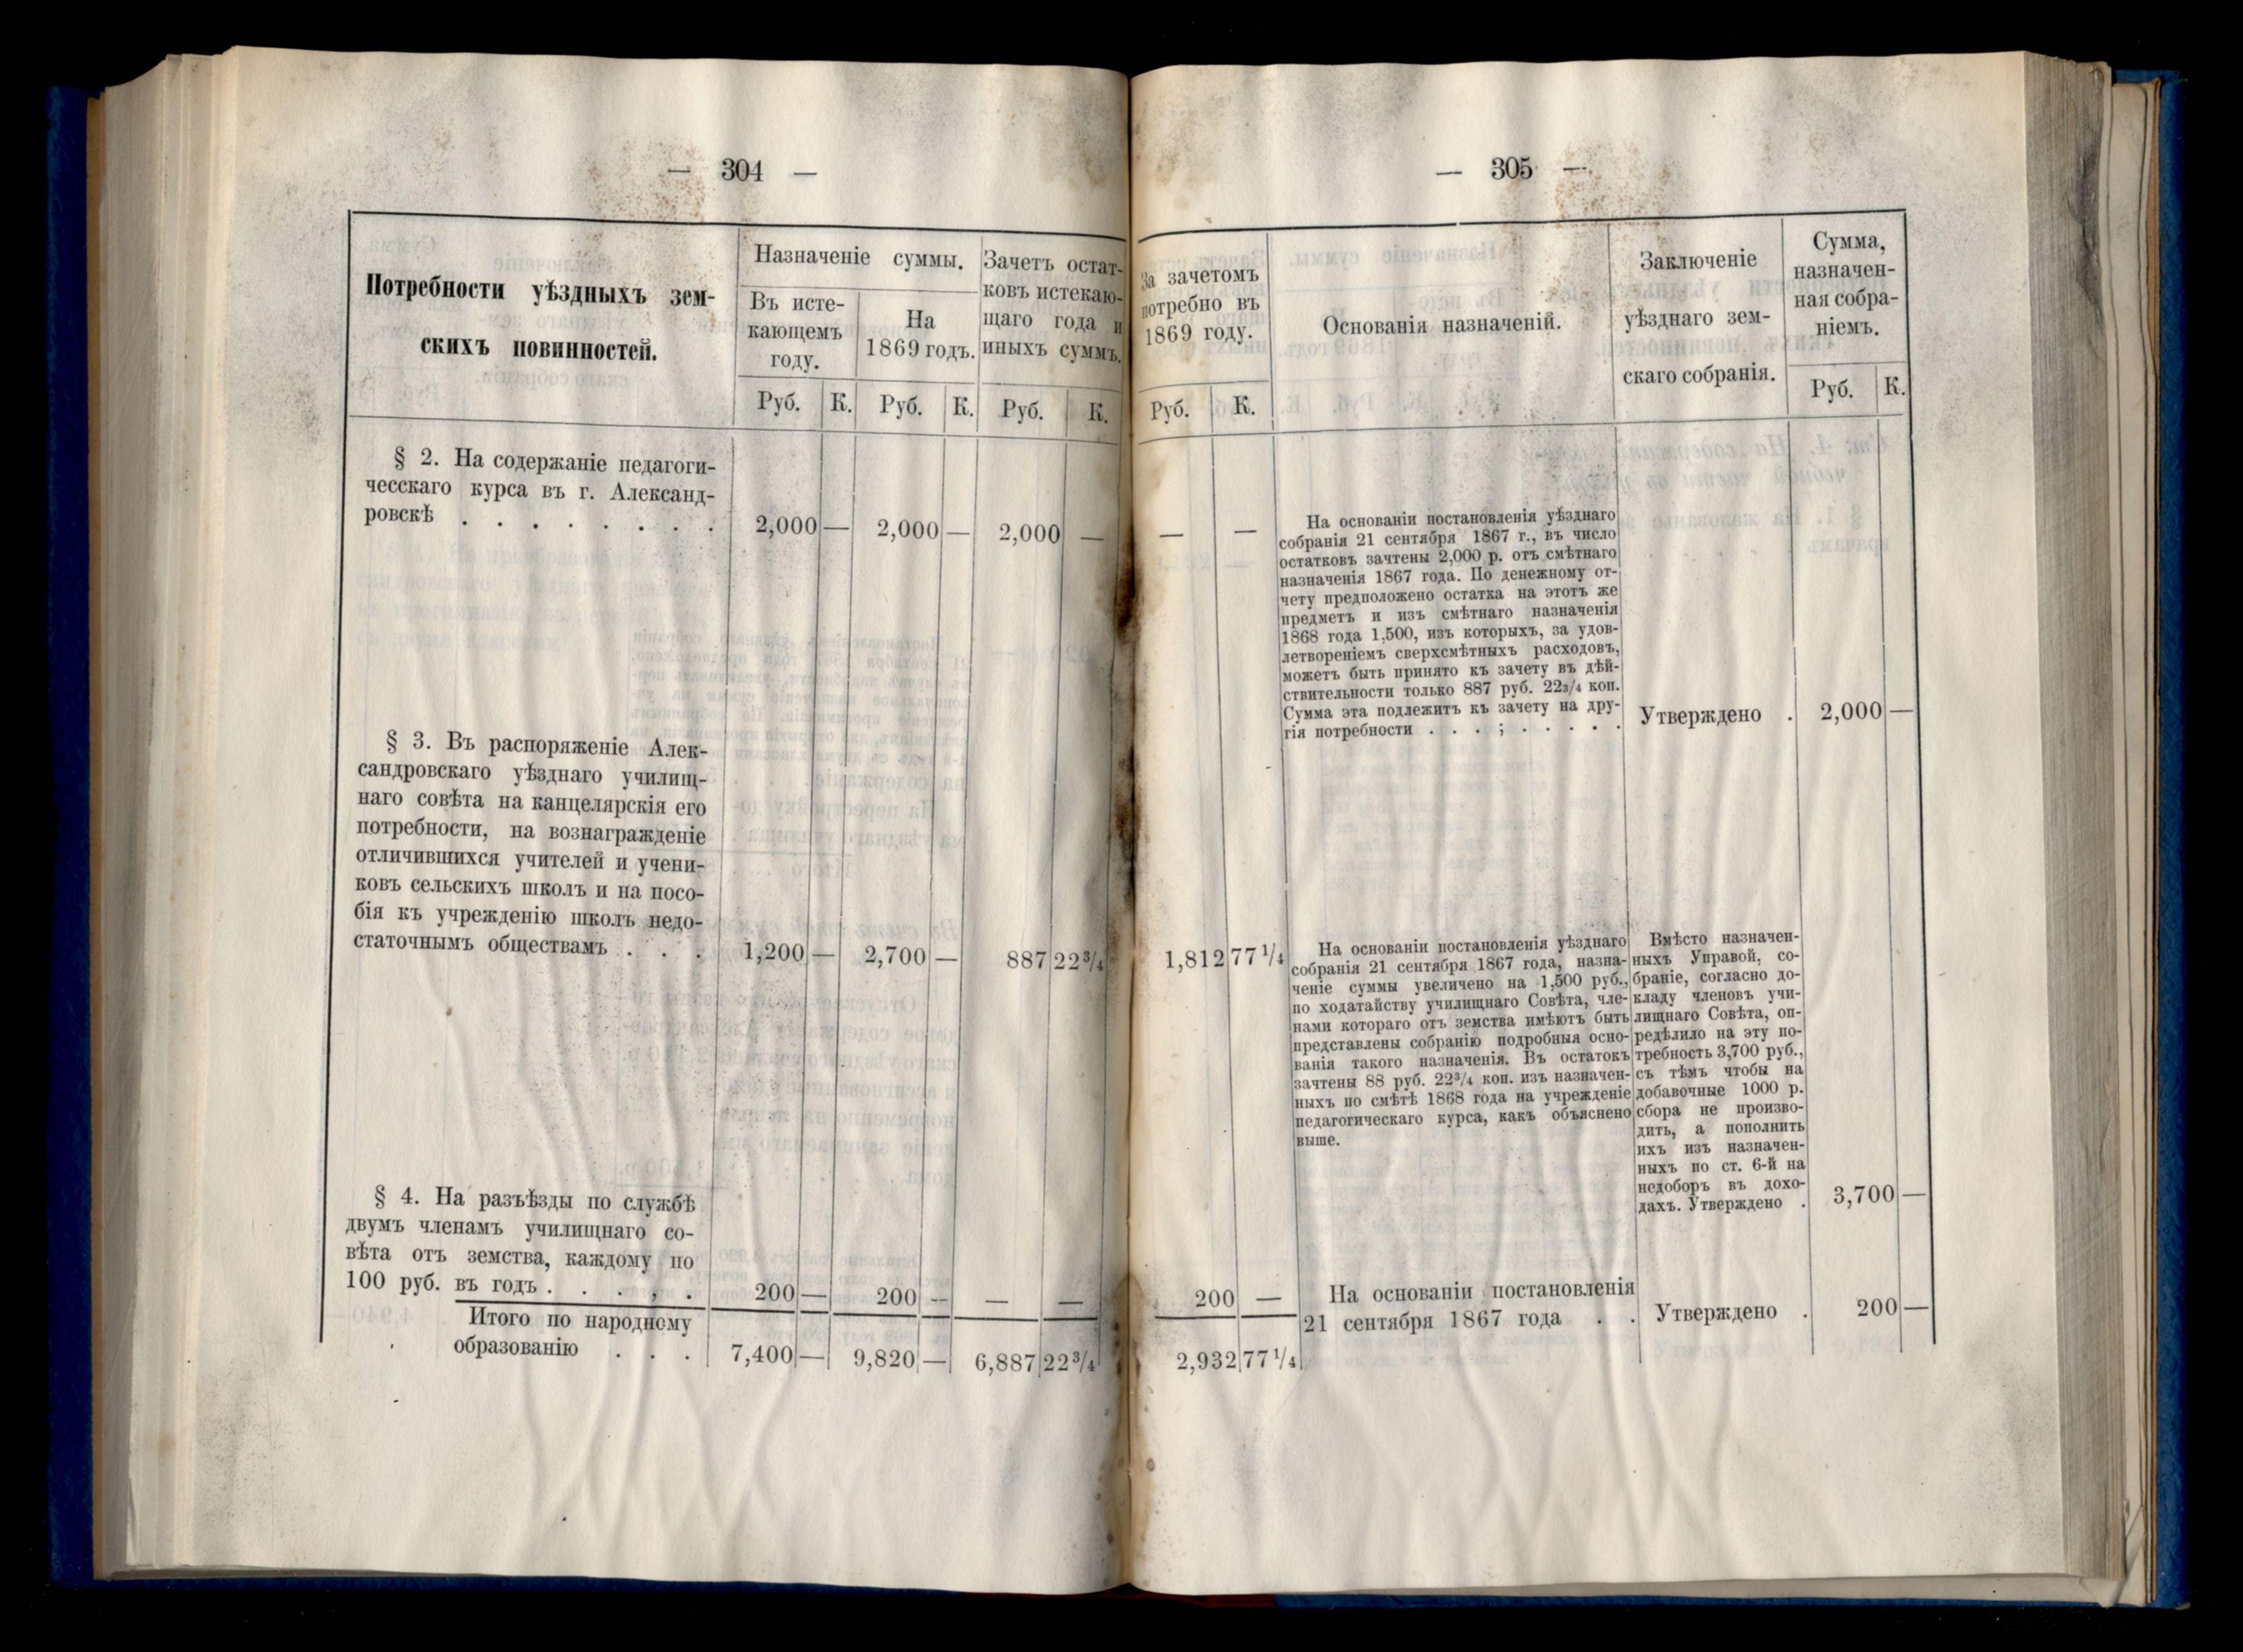 — 304 —
Потребности уѣздныхъ зем-
скихъ повинностей.
Назначеніе суммы.
Въ исте-
кающемъ
году.
На
1869 годъ.
Зачетъ остат-
ковъ истекаю-
щаго года и
иныхъ суммъ.
Руб. К. Руб. К. Руб. К.
§ 2. На содержаніе педагоги-
чесскаго курса въ г. Александ-
ровскѣ . . . . . . . . 2,000 — 2,000 — 2,000 —
§ 3. Въ распоряженіе Алек-
сандровскаго уѣзднаго училищ-
наго совѣта на канцелярскія его
потребности, на вознагражденіе
отличившихся учителей и учени-
ковъ сельскихъ школъ и на посо-
бія къ учрежденію школъ недо-
статочнымъ обществамъ . . . 1,200 — 2,700 — 887 22³/₄
§ 4. На разъѣзды по службѣ
двумъ членамъ училищнаго со-
вѣта отъ земства, каждому по
100 руб. въ годъ . . . , . 200 — 200 — — —
Итого по народному
образованію . . . 7,400 — 9,820 — 6,887 22³/₄
— 305 —
За зачетомъ
потребно въ
1869 году.
Руб. К.
Основанія назначеній.
Заключеніе
уѣзднаго зем-
скаго собранія.
Сумма,
назначен-
ная собра-
ніемъ.
Руб. К.
— —
На основаніи постановленія уѣзднаго
собранія 21 сентября 1867 г., въ число
остатковъ зачтены 2,000 р. отъ смѣтнаго
назначенія 1867 года. По денежному от-
чету предположено остатка на этотъ же
предметъ и изъ смѣтнаго назначенія
1868 года 1,500, изъ которыхъ, за удов-
летвореніемъ сверхсмѣтныхъ расходовъ,
можетъ быть принято къ зачету въ дѣй-
ствительности только 887 руб. 22³/₄ коп.
Сумма эта подлежитъ къ зачету на дру-
гія потребности . . . ; . . . . .
Утверждено . 2,000 —
1,812 77¹/₄
На основаніи постановленія уѣзднаго
собранія 21 сентября 1867 года, назна-
ченіе суммы увеличено на 1,500 руб.,
по ходатайству училищнаго Совѣта, чле-
нами котораго отъ земства имѣютъ быть
представлены собранію подробныя осно-
ванія такого назначенія. Въ остатокъ
зачтены 88 руб. 22³/₄ коп. изъ назначен-
ныхъ по смѣтѣ 1868 года на учрежденіе
педагогическаго курса, какъ объяснено
выше.
Вмѣсто назначен-
ныхъ Управой, со-
браніе, согласно до-
кладу членовъ учи-
лищнаго Совѣта, оп-
редѣлило на эту по-
требность 3,700 руб.,
съ тѣмъ чтобы на
добавочные 1000 р.
сбора не произво-
дить, а пополнить
ихъ изъ назначен-
ныхъ по ст. 6-й на
недоборъ въ дохо-
дахъ. Утверждено . 3,700 —
200 —
На основаніи постановленія
21 сентября 1867 года . .
Утверждено . 200 —
2,932 77¹/₄